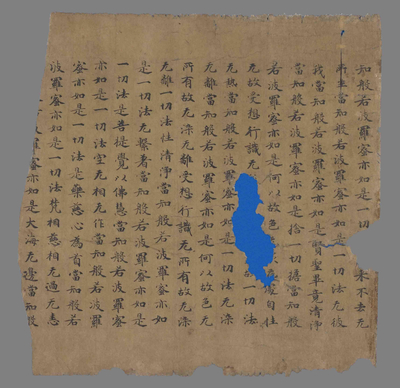 知般若波羅蜜亦如是一切 来不去无
生當知般若波羅蜜亦如是一切法无彼
我當知般若波羅蜜亦如是賢聖畢竟清淨
當知般若波羅蜜亦如是捨一切擔當知般
若波羅蜜亦如是何以故色 處自性
无故受想行識无 故一切法
无熱當知般若波羅蜜亦如是一切法无染
无離當知般若波羅蜜亦如是何以故色无
所有故无染无離受想行識无所有故无染
无離一切法性清淨當知般若波羅蜜亦如
是一切法无繫著當知般若波羅蜜亦如是
一切法是菩提覺以佛慧當知般若波羅蜜
亦如是一切法空无相无作當知般若波羅
蜜亦如是一切法是藥慈心為首當知般若
波羅蜜亦如是一切法梵相慈相无過无恚
波羅蜜亦如是大海无邊當知般